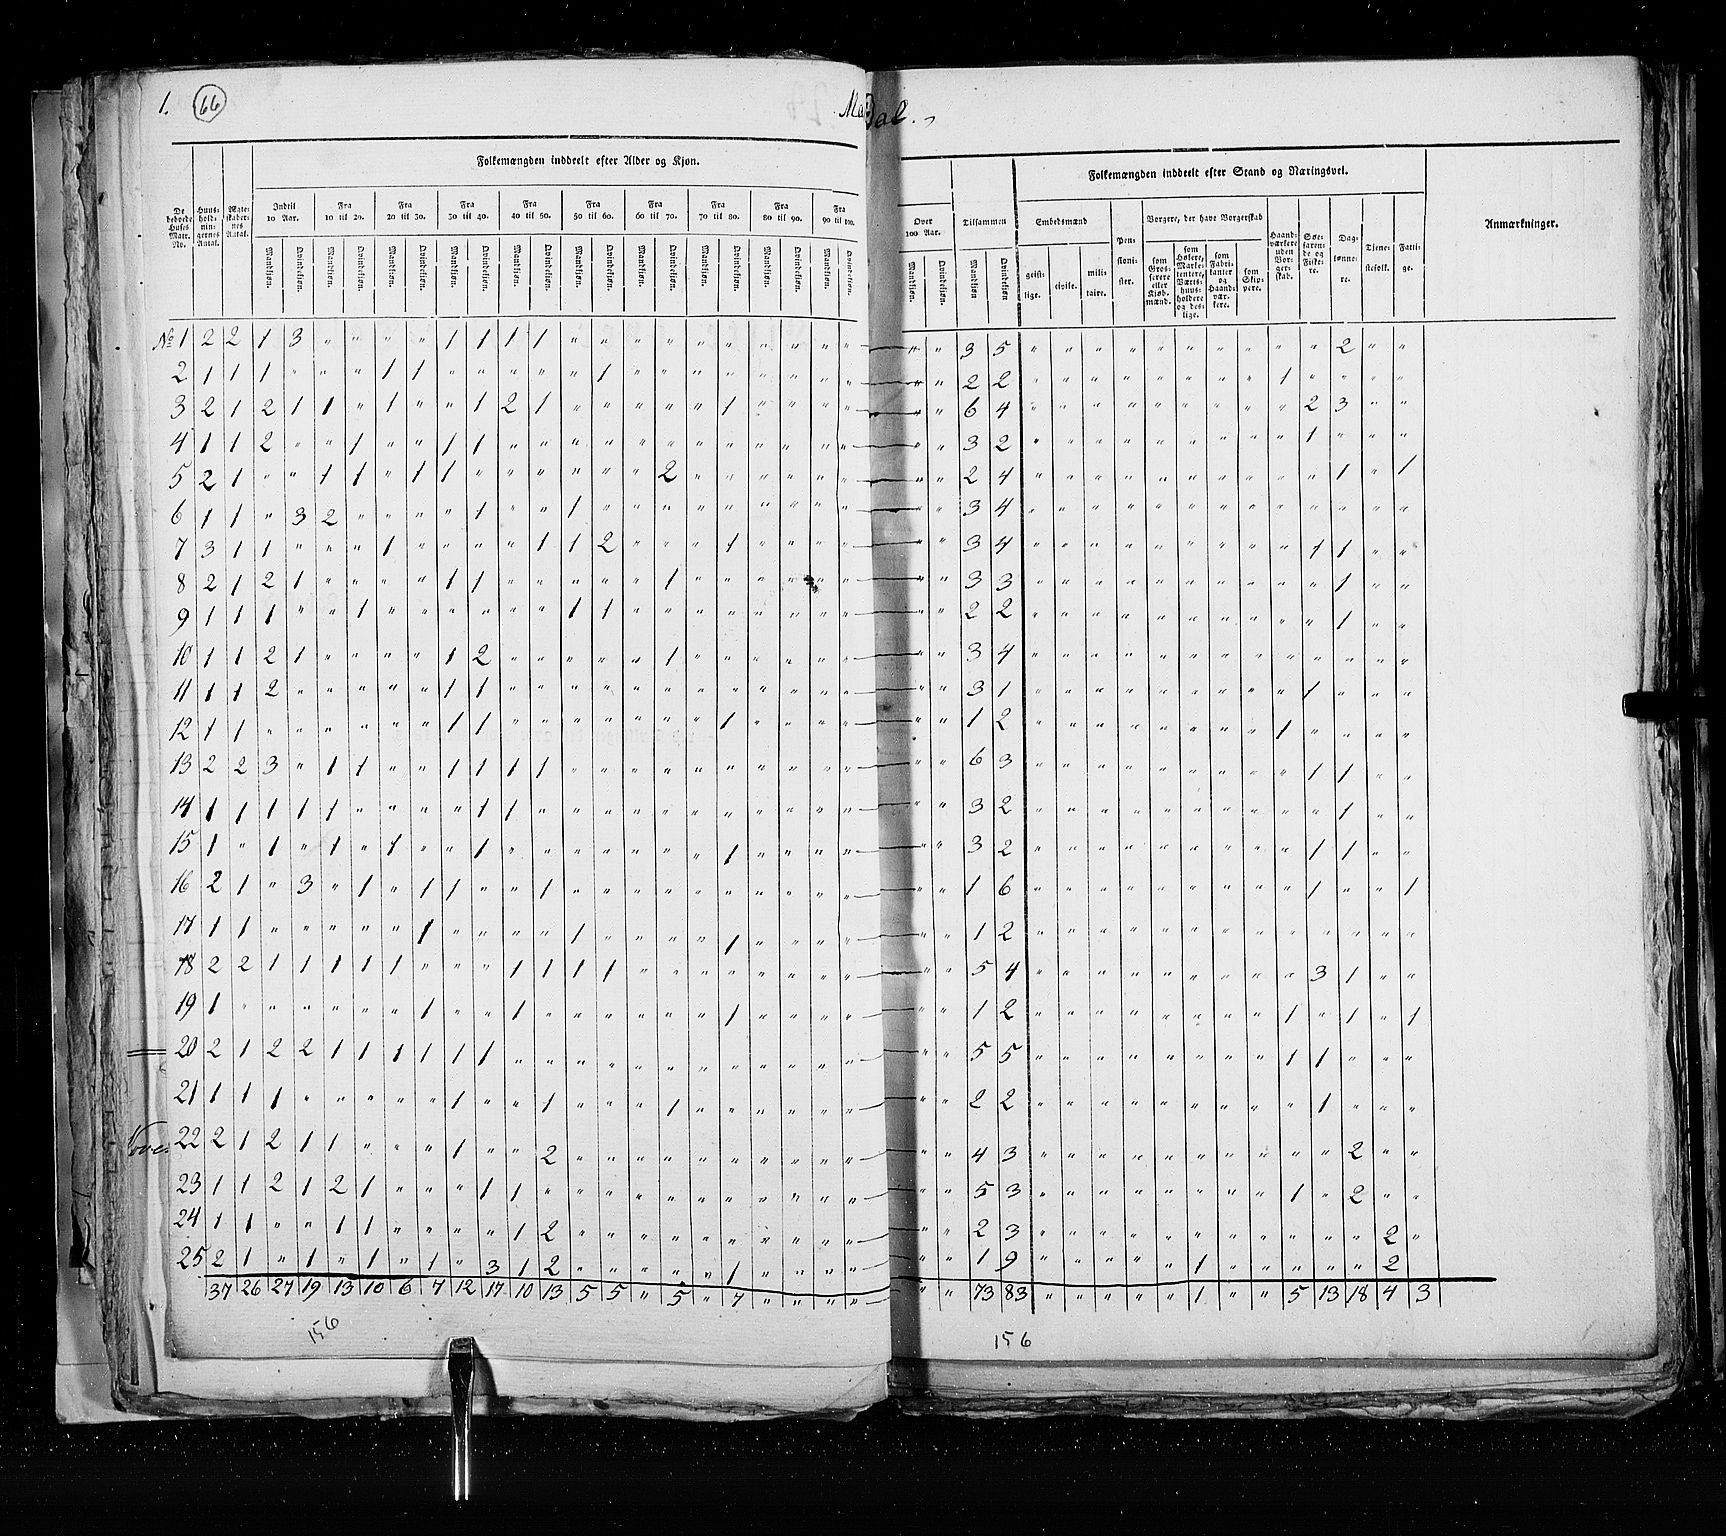 1. 66
Mandal.
De beboede Huses Matr. No. | Huus-hold-nin-gernes Antal. | Ægte-skaber-nes Antal. | Folkemængden inddeelt efter Alder og Kjøn. | Tilsammen | Folkemængden inddeelt efter Stand og Næringsvei. | Anmærkninger.
Indtil 10 Aar. | Fra 10 til 20. | Fra 20 til 30. | Fra 30 til 40. | Fra 40 til 50. | Fra 50 til 60. | Fra 60 til 70. | Fra 70 til 80. | Fra 80 til 90. | Fra 90 til 100. | Over 100 Aar. | Embedsmænd | Pen-sioni-ster. | Borgere, der have Borgerskab | Haand-værkere uden Bor-ger-skab. | Søe-faren-de og Fiske-re. | Dag-lønne-re. | Tjene-stefolk. | Fatti-ge.
Mandkjøn. | Qvindekjøn. | geist-lige. | civile. | mili-taire. | som Gros-serere eller Kjøb-mænd. | som Høkere, Marke-tentere, Værts-huus-holdere og des-lige. | som Fabri-kanter og Haand-vær-kere. | som Skip-pere.
No 1 2 2 1 3 " " " " " 1 1 1 1 " " " " " " " " " " " " 3 5 " " " " " " " " " " 2 " "
2 1 1 1 " " " 1 1 " " " " " 1 " " " " " " " " " " 2 2 " " " " " " " " 1 " " " "
3 2 1 2 1 1 " 1 " " 1 2 1 " " " " " 1 " " " " " " 6 4 " " " " " " " " " 2 3 " "
4 1 1 2 " " 1 " " 1 1 " " " " " " " " " " " " " " 3 2 " " " " " " " " " 1 " " "
5 2 1 " " 1 1 " 1 1 " " " " " " 2 " " " " " " " " 2 4 " " " " " " " " " " 1 " 1
6 1 1 " 3 2 " " " " 1 " " 1 " " " " " " " " " " " 3 4 " " " " " " " " " " " " "
7 3 1 1 " " " 1 " " " " 1 1 2 " " " 1 " " " " " " 3 4 " " " " " " " " " 1 1 " "
8 2 1 2 1 " " " " 1 1 " " " " " 1 " " " " " " " " 3 3 " " " " " " " " " " 1 " "
9 1 1 1 " " 1 " " " " " " 1 1 " " " " " " " " " " 2 2 " " " " " " " " " " 1 " "
10 1 1 2 1 " " " " 1 2 " " " " " 1 " " " " " " " " 3 4 " " " " " " " " " " " " "
11 1 1 2 " " " " " 1 1 " " " " " " " " " " " " " " 3 1 " " " " " " " " " 1 " " "
12 1 1 " " " " " " 1 1 " " " " " " " 1 " " " " " " 1 2 " " " " " " " " 1 " " " "
13 2 2 3 " 1 1 " " 1 1 1 1 " " " " " " " " " " " " 6 3 " " " " " " " " " 1 1 " "
14 1 1 1 1 1 " " " " 1 1 " " " " " " " " " " " " " 3 2 " " " " " " " " " " 1 " "
15 1 " 1 " 1 " 1 " " 1 " " " " " " " 1 " " " " " " 3 2 " " " " " " " " " 1 1 " "
16 2 1 " 3 " 1 " 1 1 " " 1 " " " " " " " " " " " " 1 6 " " " " " " " " " 1 " " 1
17 1 1 " " " " " 1 " " " " 1 " " " " 1 " " " " " " 1 2 " " " " " " " " " " " " "
18 2 2 1 1 1 1 1 " " " 1 1 1 1 " " " " " " " " " " 5 4 " " " " " " " " " 3 1 " "
19 1 " " " " " " 1 " " 1 " " " " " " 1 " " " " " " 1 2 " " " " " " " " 1 " 1 " 1
20 2 1 2 2 1 1 1 1 1 1 " " " " " " " " " " " " " " 5 5 " " " " " " " " 1 1 " " "
21 1 1 1 " " " " " 1 " " 1 " " " 1 " " " " " " " " 2 2 " " " " " " " " " 1 " " "
22 2 1 2 1 1 " " " 1 " " 2 " " " " " " " " " " " " 4 3 " " " " " " " " " " 2 " "
23 1 1 2 1 2 1 " " " 1 1 " " " " " " " " " " " " " 5 3 " " " " " " " " 1 " 2 " "
24 1 1 " " 1 1 " " " " 1 2 " " " " " " " " " " " " 2 3 " " " " " " " " " " " 2 "
25 2 1 " 1 " 1 " 1 " 3 1 2 " " " " " 1 " " " " " " 1 9 " " " " " 1 " " " " " 2
37 26 27 19 13 10 6 7 12 17 10 13 5 5 " 5 " 7 " " " " " " 73 83 " " " " " 1 " " 5 13 18 4 3
156
156